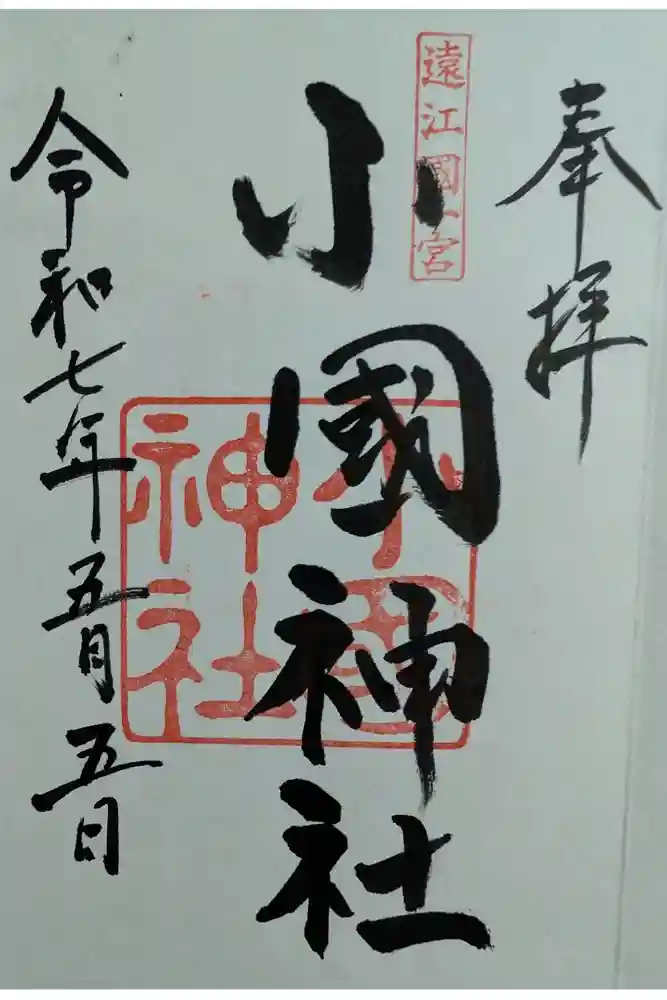 奉拝
遠江國一宮
小國神社
小國神社
令和七年五月五日